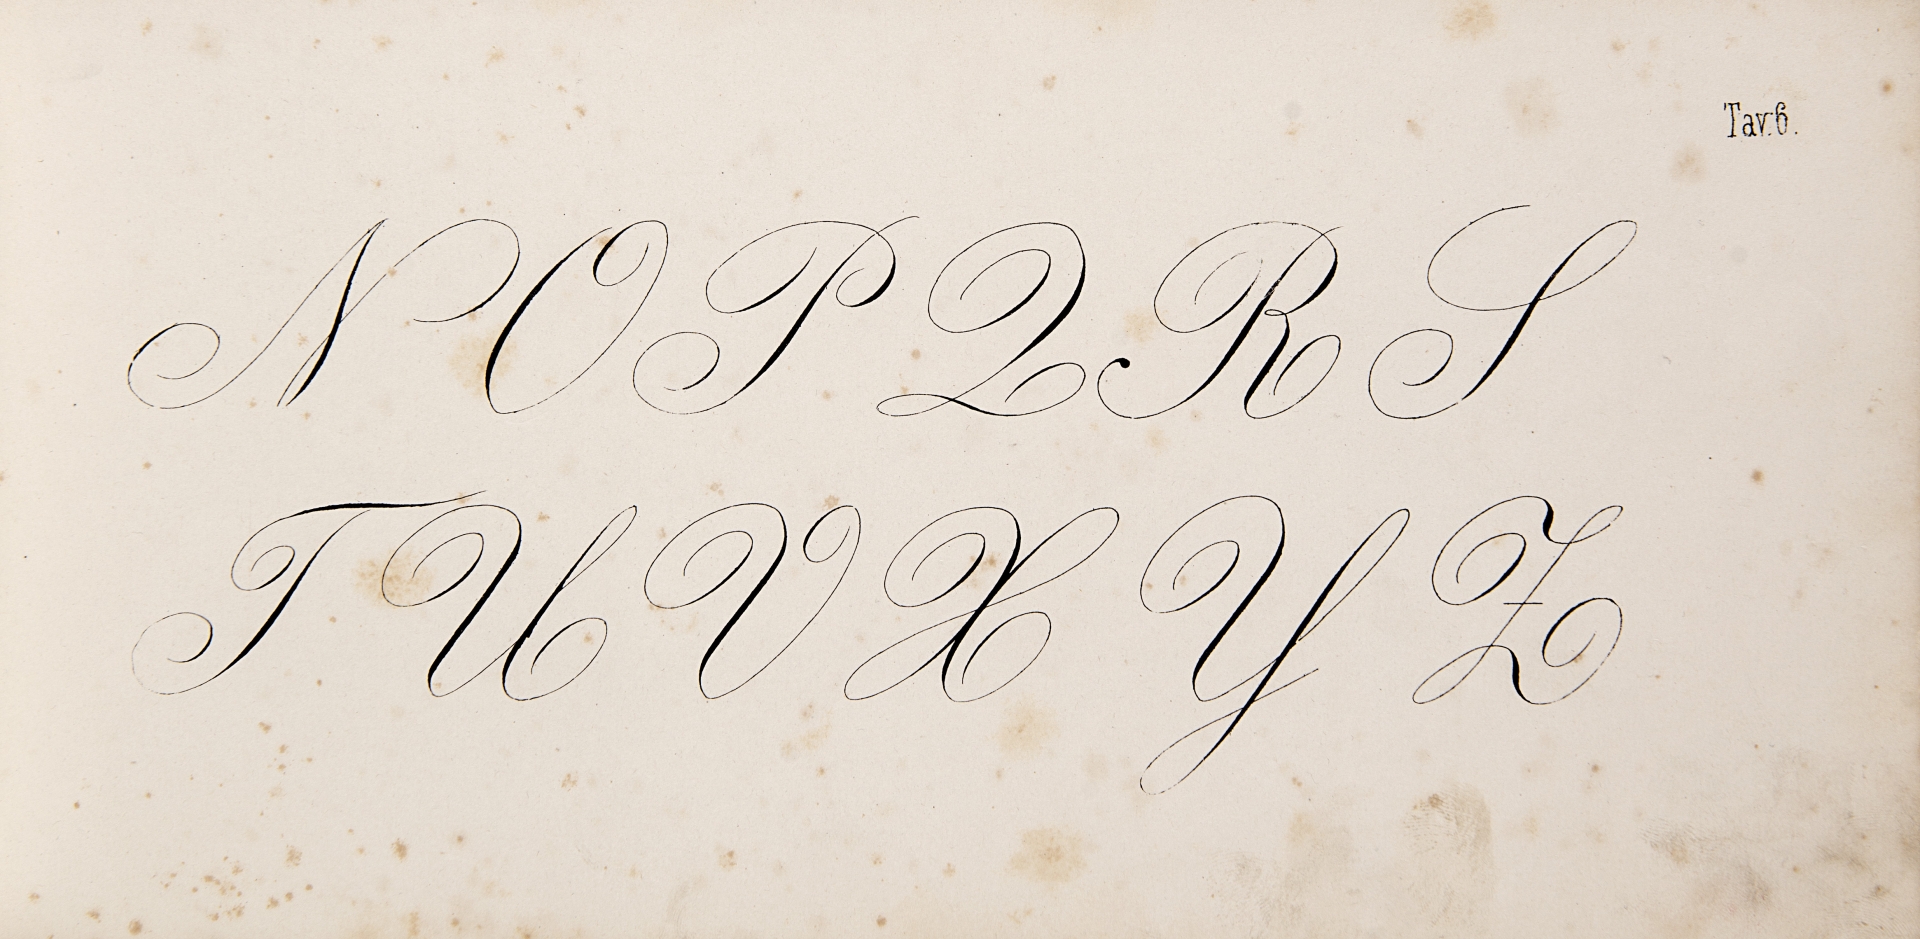 Tav. 6.
N O P Q R S
T U V X Y Z